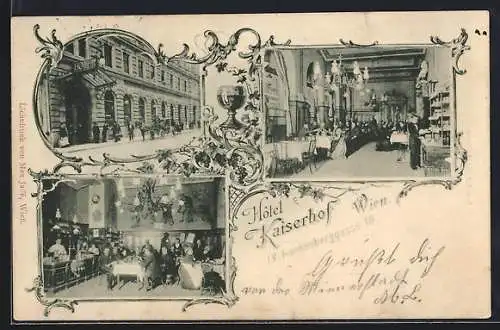 Lichtdruck von Max Jaffé, Wien.
Hôtel
Kaiserhof Wien
IV. Frankenberggasse 10
Grüsst Dich
von der Wienerstadt